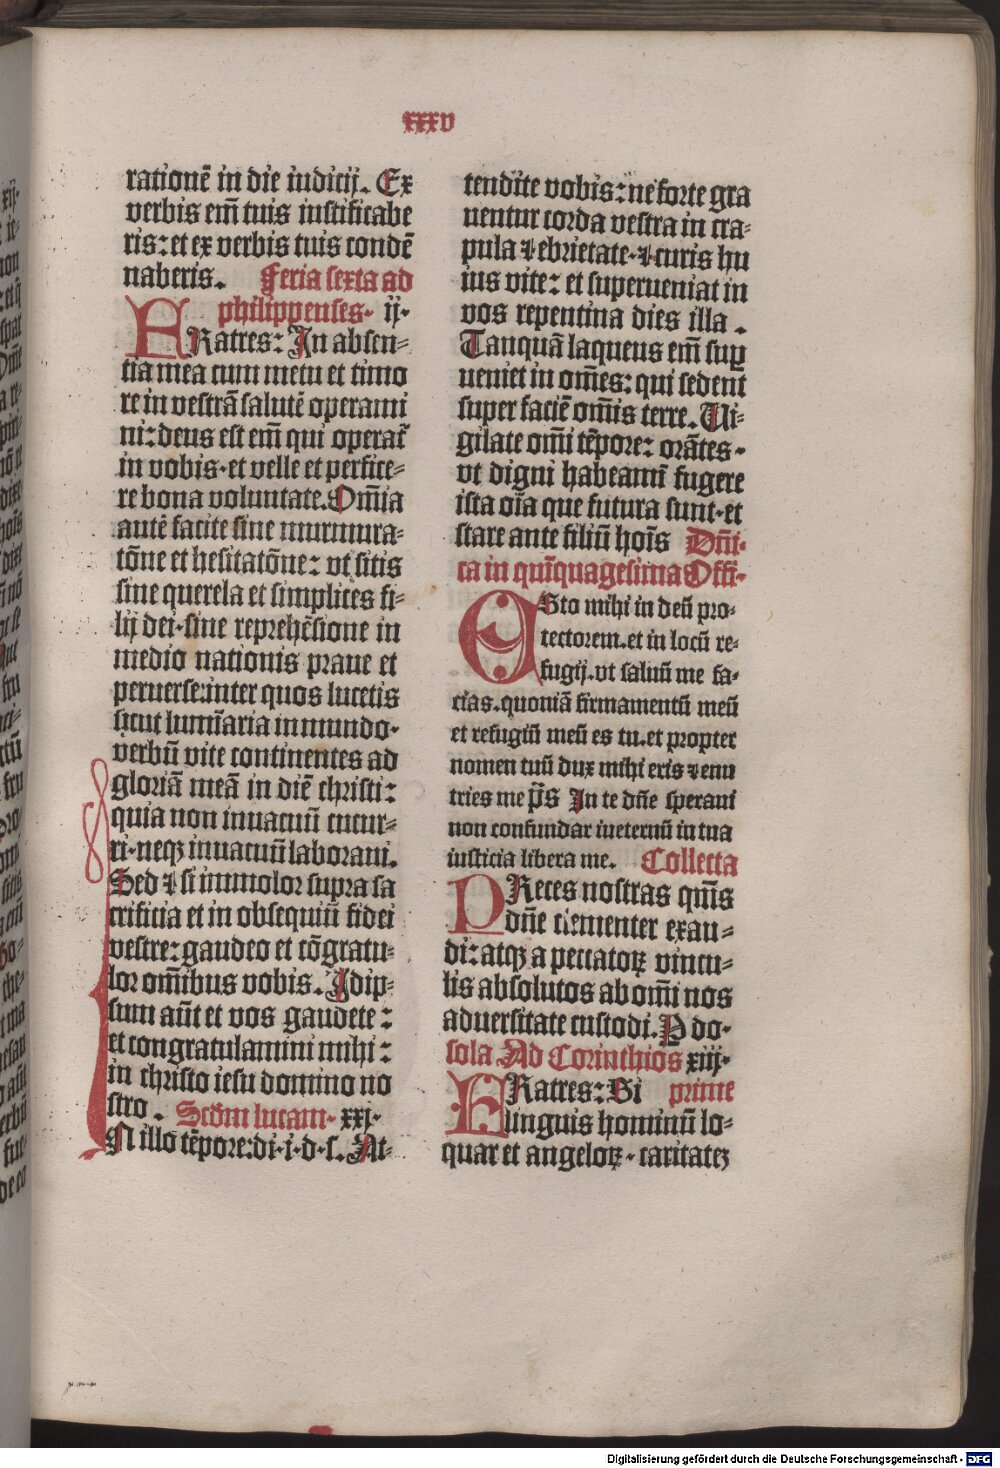 xxxv
rationē in die iudicij. Ex
verbis em̄ tuis iustificabe
ris: et ex verbis tuis condē
naberis. Feria sexta ad
philippenses. ij.
FRatres: In absen⸗
tia mea cum metu et timo
re in vestrā salutē operami
ni: deus est em̄ qui operat̄
in vobis. et velle et perfice⸗
re bona voluntate. Om̄ia
autē facite sine murmura⸗
tōne et hesitatōne: vt sitis
sine querela et simplices fi⸗
lij dei. sine reprehēsione in
medio nationis praue et
peruerse: inter quos lucetis
sicut lumīaria in mundo.
verbū vite continentes ad
gloriā meā in diē christi:
quia non inuacuū cucur⸗
ri. neqꝫ inuacuū laboraui.
Sed ⁊ si immolor supra sa
crificia et in obsequiū fidei
vestre: gaudeo et cōgratu⸗
lor om̄ibus vobis. Idip⸗
sum aūt et vos gaudete:
et congratulamini mihi:
in christo iesu domino no
stro. Scd̄m lucam. xxj.
IN illo tēpore: di. i. d. s. At⸗
tendite vobis: ne forte gra
uentur corda vestra in cra⸗
pula ⁊ ebrietate. ⁊ curis hu
ius vite: et superueniat in
vos repentina dies illa.
Tanquā laqueus em̄ suꝑ
ueniet in om̄es: qui sedent
super faciē om̄is terre. Ui⸗
gilate om̄i tēpore: orātes.
vt digni habeami fugere
ista oīa que futura sunt. et
stare ante filiū hoīs Dn̄i⸗
ca in quīquagesima Offi.
ESto mihi in deū pro⸗
tectorem. et in locū re⸗
fugij. vt saluū me fa⸗
cias. quoniā firmamentū meū
et refugiū meū es tu. et propter
nomen tuū dux mihi eris ⁊ enu
tries me p̄s In te dn̄e speraui
non confundar ineternū in tua
iusticia libera me. Collecta
PReces nostras qm̄s
dn̄e clementer exau⸗
di: atqꝫ a peccatoꝝ vincu⸗
lis absolutos ab om̄i nos
aduersitate custodi. P do.
sola Ad Corinthios xiij.
FRatres: Si prime
linguis hominū lo⸗
quar et angeloꝝ. caritatez
Digitalisierung gefördert durch die Deutsche Forschungsgemeinschaft - DFG